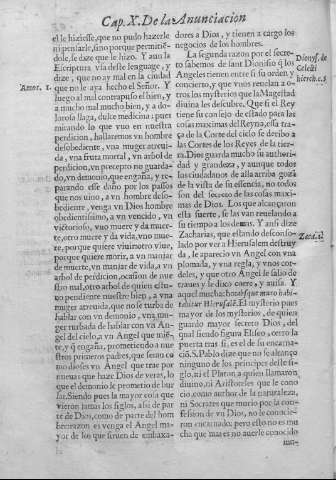 Cap. X. De la Anunciación
el le hiziesse, que no pudo hazerle
ni pensarle, sino porque permitié-
dole, se dize que le hizo. Y ansi la
Escriptura vsa deste lenguaje, y
dize, que no ay mal en la ciudad
Amos. 1.
que no le aya hecho el Señor. Y
luego al mal contrapuso el bien, y
a mucho mal mucho bien, y a do-
lorosa llaga, dulce medicina: pues
mirando lo que vuo en nuestra
perdicion, hallaremos vn hombre
desobediente, vna muger atreui-
da, vna fruta mortal, vn arbol de
perdicion, vn precepto no guarda-
do, vn demonio, que engaña, y re-
parando esse daño por los passos
que nos vino, a vn hombre deso-
bediente, venga vn Dios hombre
obedientissimo, a vn vencido, vn
victorioso, vuo muere y da muer-
te, otro muere y da vida, vno mue-
re, porque quiere viuir otro viue,
porque quiere morir, a vn manjar
de muerte, vn manjar de vida, a vn
arbol de perdicion, ocasion de nue
stro mal, otro arbol de quien estu-
uo pendiente nuestro bien, a vna
muger atreuida, que no se turba de
hablar con vn demonio, vna mu-
ger turbada de hablar con vn An-
gel del cielo, a vn Angel que mié-
te, y q̃ engaña, prometiendo a nue
stros primeros padres, que seran co
mo dioses vn Angel que trate por
nueua que haze Dios de veras, lo
que el demonio le prometio de bur
las. Siendo pues la mayor cosa que
vieron jamas los siglos, assi de par
te de Dios, como de parte del hom
bre
razon es venga el Angel ma-
yor de los que siruen de embaxa-
dores a Dios, y tienen a cargo los
negocios de los hombres.
La segunda razon por el secre-
to sabemos de sant Dionisio q̃ los
Dionys. de
Celesti
hierch. c. 3
Angeles tienen entre si su orden y
concierto, y que vnos reuelan a o-
tros los mysterios que la Magestad
diuina les descubre. Que si el Rey
tiene su consejo de estado para las
cosas maximas del Reyno, essa tra-
ça de la Corte del cielo se deribo a
las Cortes de los Reyes de la tier-
ra. Dios guarda mucho su authori-
dad y grandeza, y aunque todos
los ciudadanos de alla arriba goza
de la vista de su essencia, no todos
son del secreto de las cosas maxi-
mas de Dios. Los que alcançaron
esta suerte, se las van reuelando a
su tiempo a los demas. Y ansi dize
Zacharias, que estando desconso-
Zach. 2.
lado por ver a Hierusalem destruy
da, le aparecio vn Angel con vna
plomada, y vna regla, y vnos cor-
deles, y que otro Angel le salio de
traues y le dixo corre, y auisa. Y
aquel muchacho absque muro habi-
tabitur Hierusalẽ. El mysterio pues
mayor de los mysterios, de quien
guardo mayor secreto Dios, del
qual siendo figura Eliseo, cerro la
puerta tras si, es el de su encarna-
ció. S. Pablo dize que no le alcançò
ninguno de los principes deste si-
glo, ni el Platon a quien llamaron
diuino, ni Aristoteles que le cono
cio como author de la naturaleza,
ni Socrates que murio por la con-
fession de vn Dios, no le conocie-
ron encarnado: pero esto no es mu
cho que mas es no auerle conocido